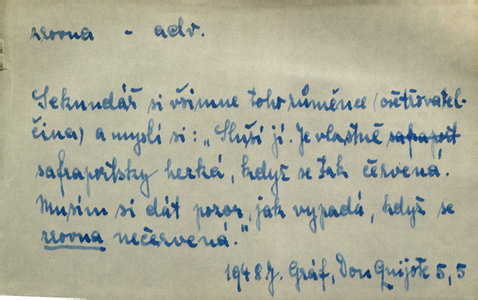 zrovna - adv.
Sekundář si všimne toho růměnce (ošetřovatel-
čina) a myslí si: „Sluší jí. Je vlastně safraport
safraportsky hezká, když se tak červená.
Musím si dát pozor, jak vypadá, když se
zrovna nečervená."
1948 J. Gráf, Don Quijote 5, 5